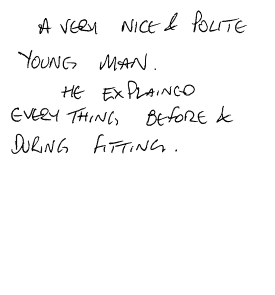 A VERY NICE & POLITE
YOUNG MAN.
HE EXPLAINED
EVERYTHING BEFORE &
DURING FITTING.